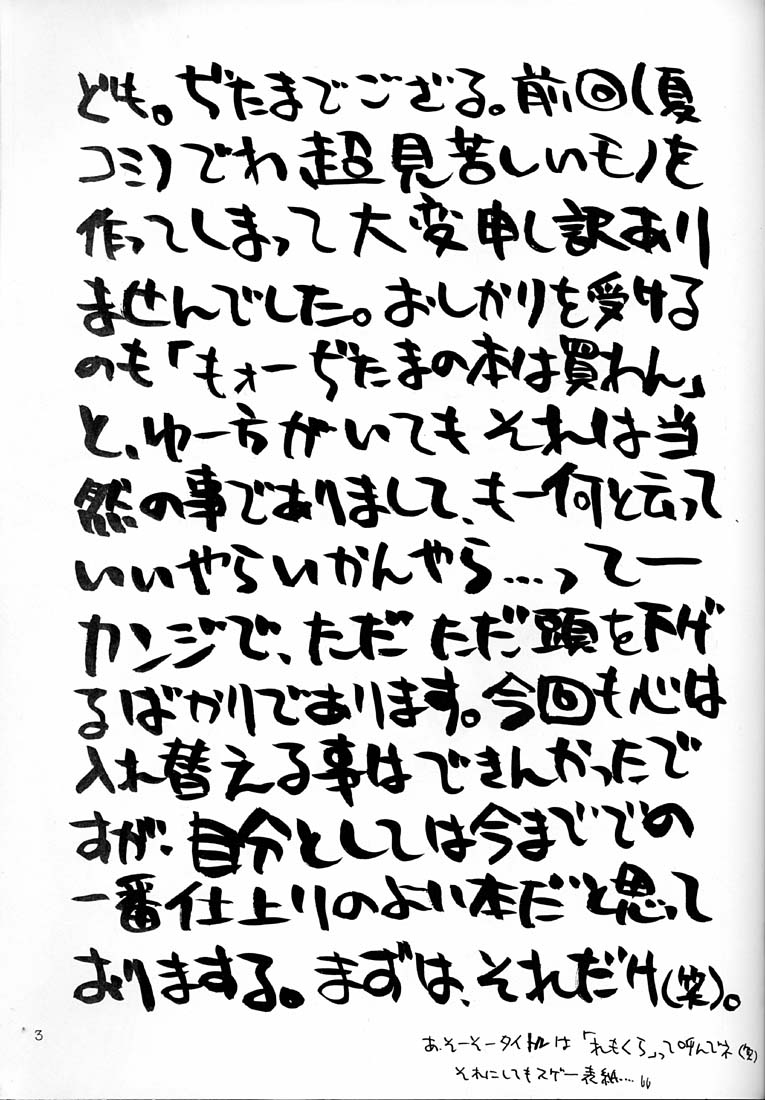 ども。ぢたまでござる。前回(夏
コミ)でわ超見苦しいモノを
作ってしまって大変申し訳あり
ませんでした。おしかりを受ける
のも「もォーぢたまの本は買わん」
と、ゆー方がいてもそれは当
然の事でありまして、もー何と云って
いいやらいかんやら...ってー
カンジで、ただただ頭を下げ
るばかりであります。今回も心は
入れ替える事はできんかったで
すが、自分としては今まででの
一番仕上りのよい本だと思って
おりまする。まずは、それだけ(笑)。
あ、そーそータイトルは「れもくら」って呼んでネ(笑)
それにしてもスゲー表紙....
3